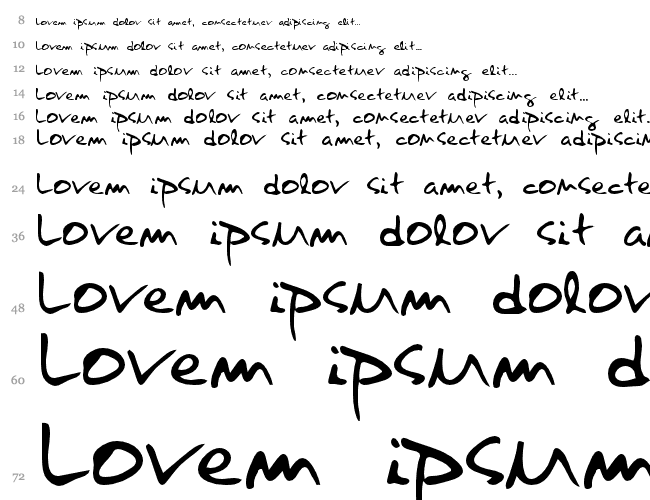 8 Lorem ipsum dolor sit amet, consectetuer adipiscing elit...
10 Lorem ipsum dolor sit amet, consectetuer adipiscing elit...
12 Lorem ipsum dolor sit amet, consectetuer adipiscing elit...
14 Lorem ipsum dolor sit amet, consectetuer adipiscing elit...
16 Lorem ipsum dolor sit amet, consectetuer adipiscing elit.
18 Lorem ipsum dolor sit amet, consectetuer adipiscin
24 Lorem ipsum dolor sit amet, consecte
36 Lorem ipsum dolor sit a
48 Lorem ipsum dolor
60 Lorem ipsum d
72 Lorem ipsum